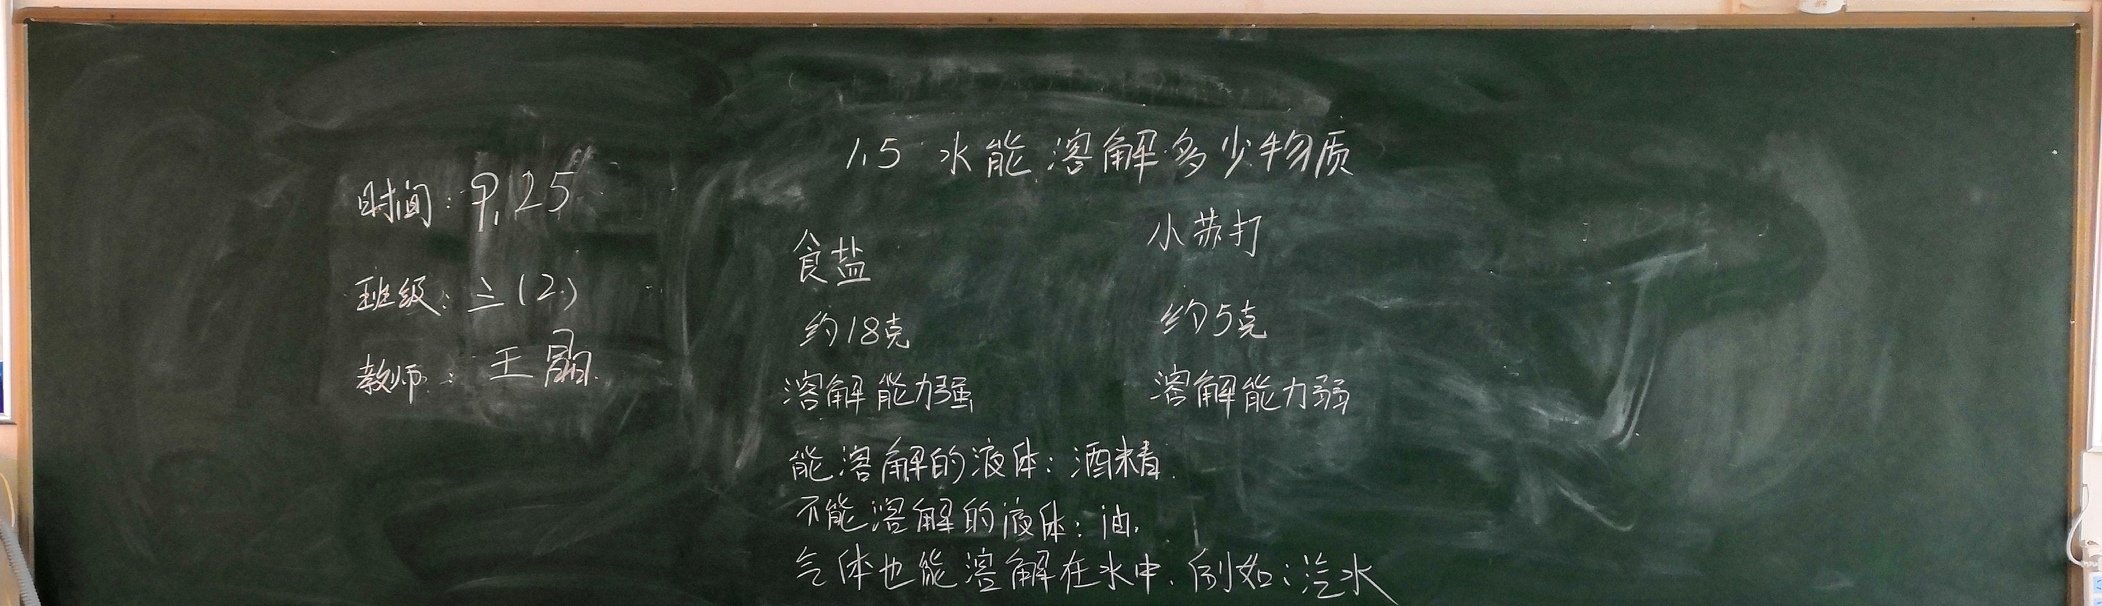 1.5 水能溶解多少物质
时间：9.25
班级：三（2）
教师：王晶
食盐 小苏打
约18克 约5克
溶解能力强 溶解能力弱
能溶解的液体：酒精.
不能溶解的液体：油.
气体也能溶解在水中.例如：汽水